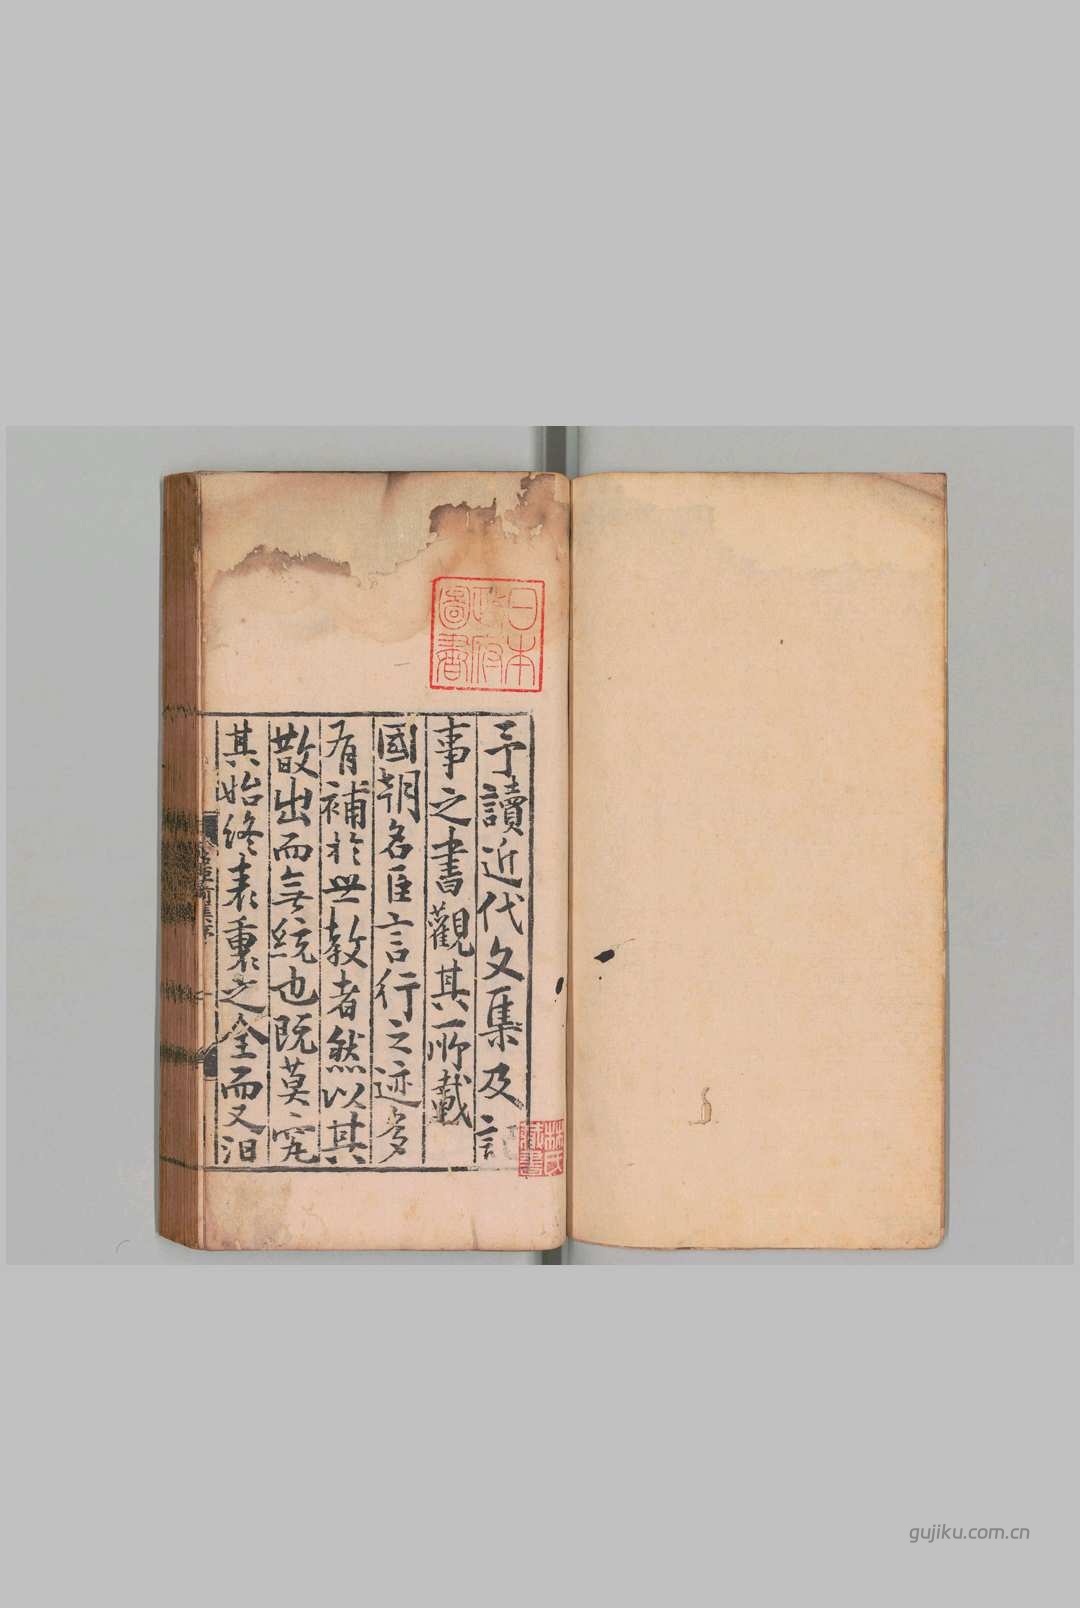 予讀近代文集及記
事之書觀其所載
國朝名臣言行之迹多
有補於世教者然以其
散出而無統也既莫究
其始終表裏之全而又汩
日本
政府
圖書
林氏
藏書
gujiku.com.cn